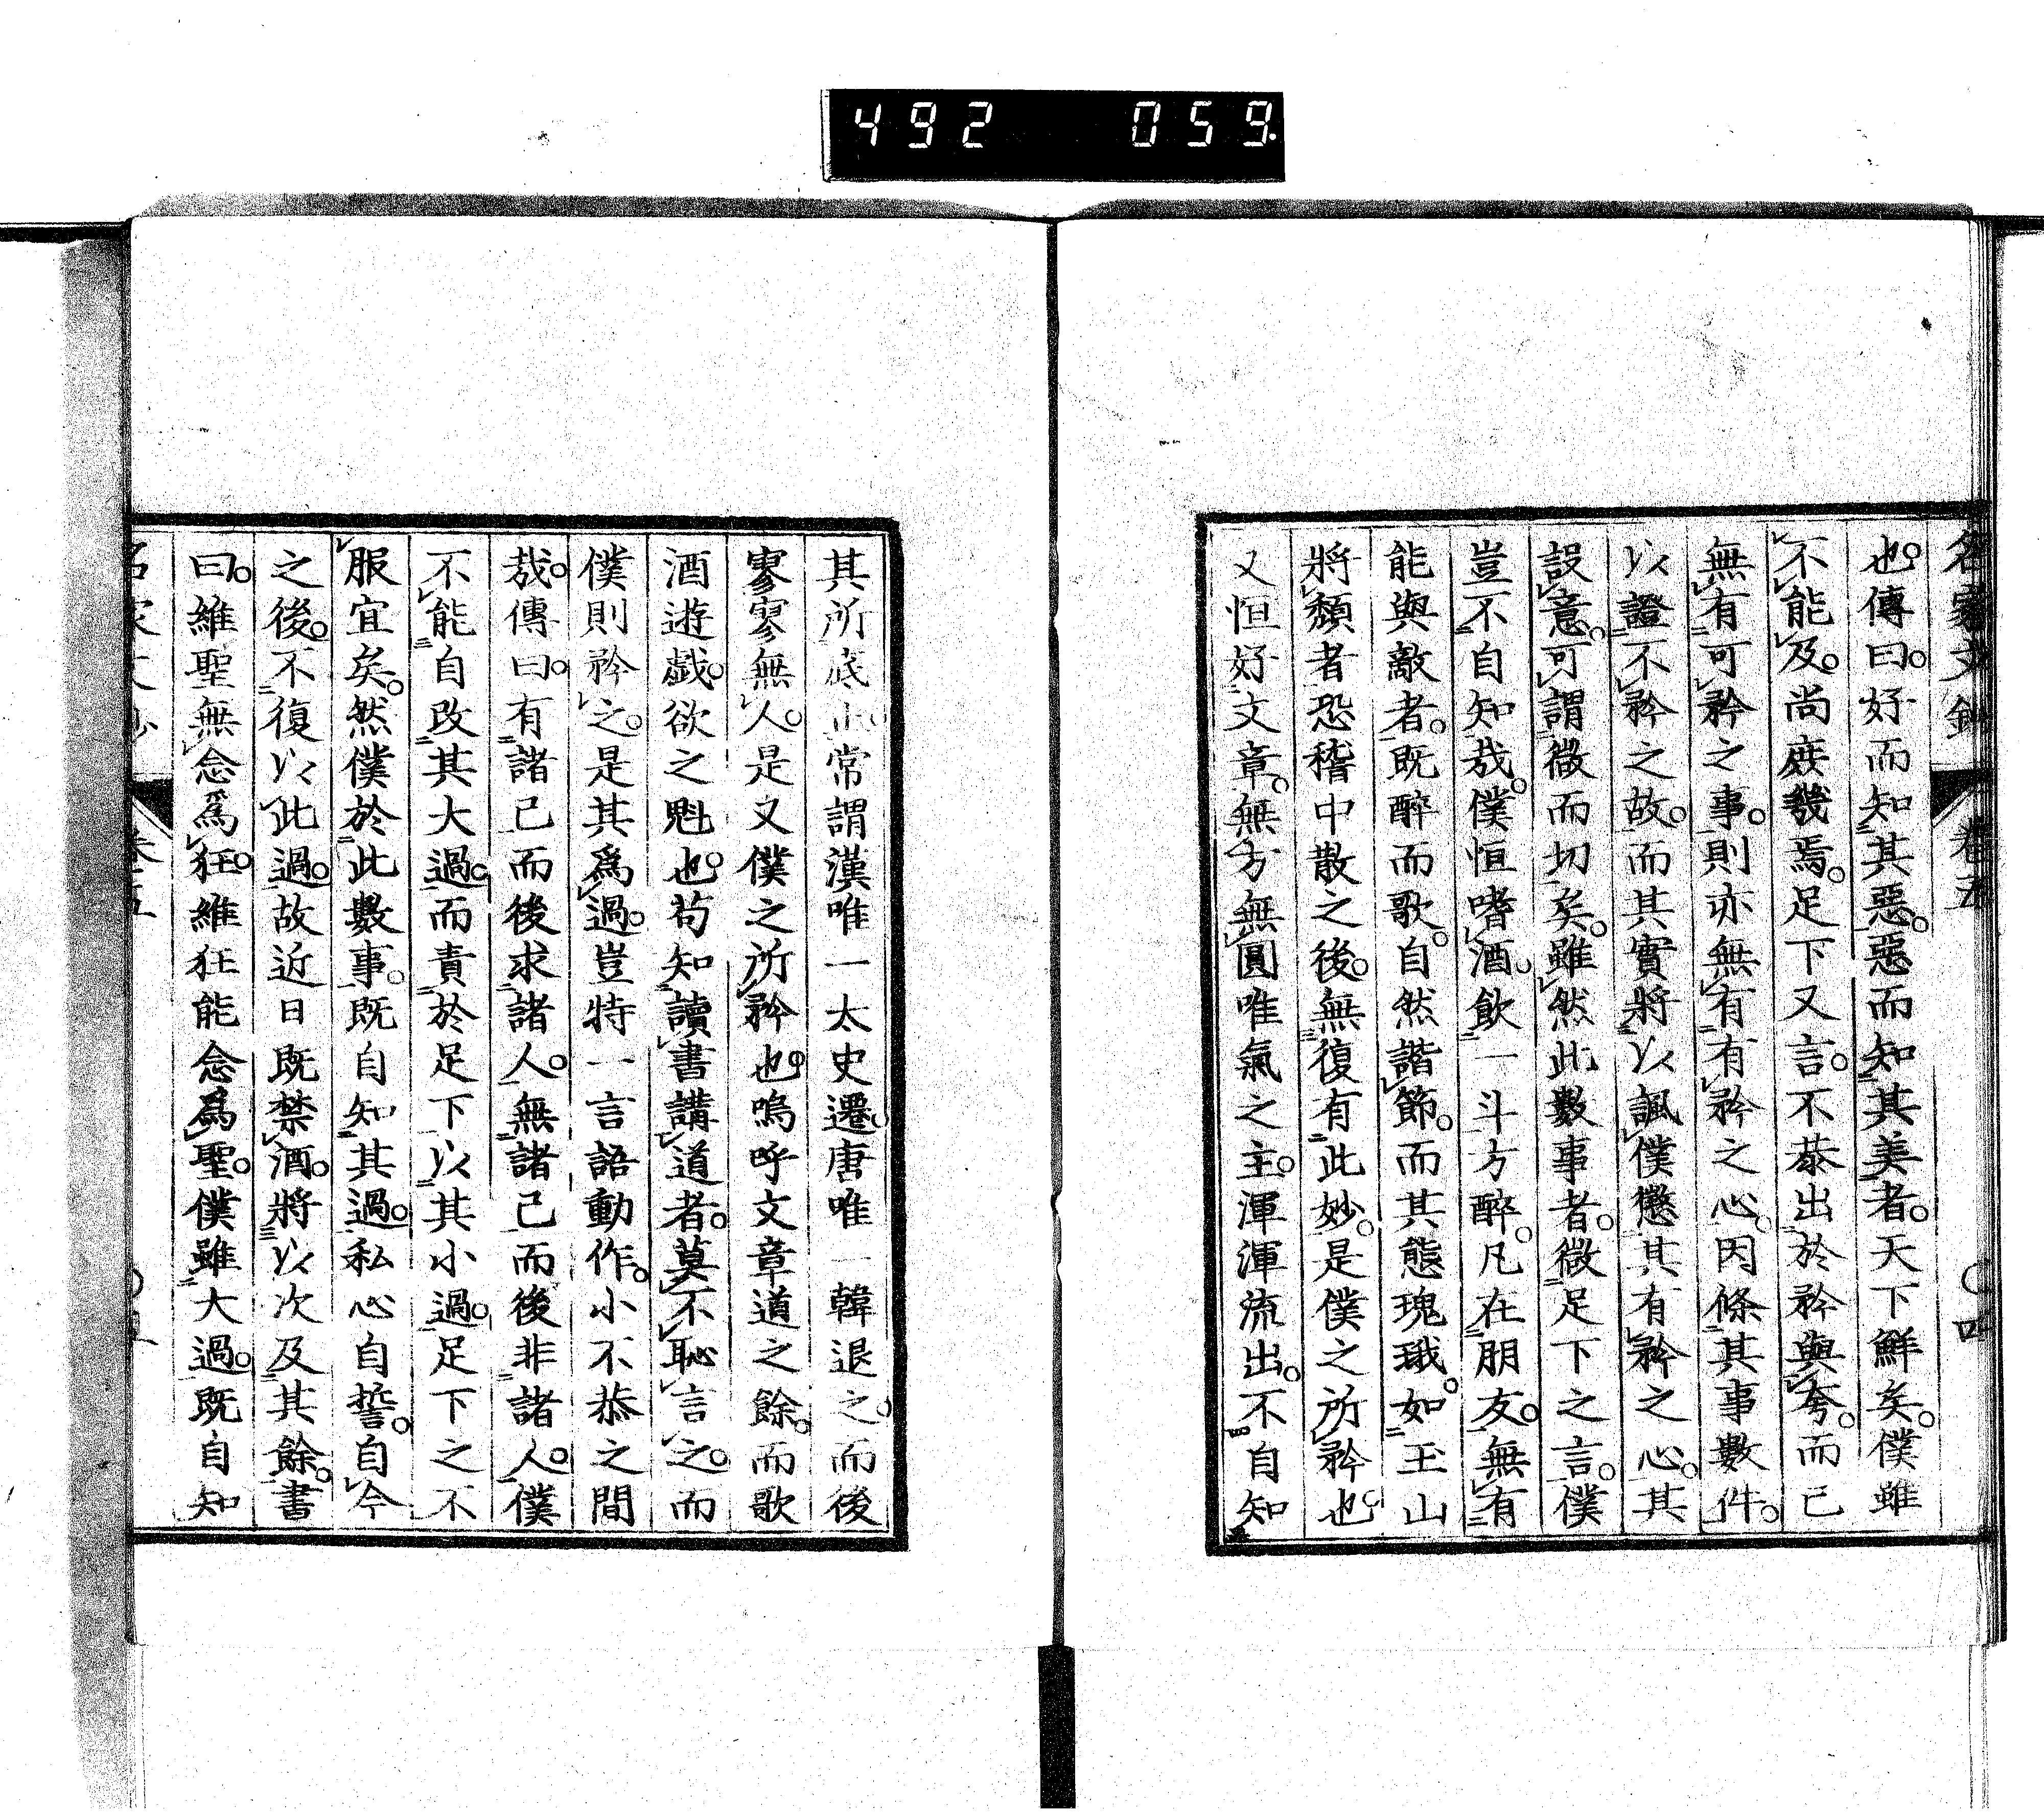 492 059
名家文鈔 卷五 〇四
也。傳曰。好而知其惡。惡而知其美者。天下鮮矣。僕雖
不能及。尚庶幾焉。足下又言。不恭出於矜與夸。而已
無有可矜之事。則亦無有有矜之心。因條其事數件。
以證不矜之故。而其實將以諷僕懲其有矜之心。其
設意。可謂微而切矣。雖然此數事者。微足下之言。僕
豈不自知哉。僕恒嗜酒。飲一斗方醉。凡在朋友。無有
能與敵者。既醉而歌。自然諧節。而其態瑰珴。如玉山
將頽者恐稽中散之後。無復有此妙。是僕之所矜也。
又恒好文章。無方無圓唯氣之主。渾渾流出。不自知
其所底止。常謂漢唯一太史遷。唐唯一韓退之。而後
寥寥無人。是又僕之所矜也。嗚呼文章道之餘。而歌
酒遊戲。欲之魁也。苟知讀書講道者。莫不恥言之。而
僕則矜之。是其爲過。豈特一言語動作。小不恭之間
哉。傳曰。有諸己而後求諸人。無諸己而後非諸人。僕
不能自改其大過。而責於足下以其小過。足下之不
服宜矣。然僕於此數事。既自知其過。私心自誓。自今
之後。不復以此過。故近日既禁酒。將以次及其餘。書
曰。維聖無念爲狂。維狂能念爲聖。僕雖大過。既自知
名家文鈔 卷五 〇五